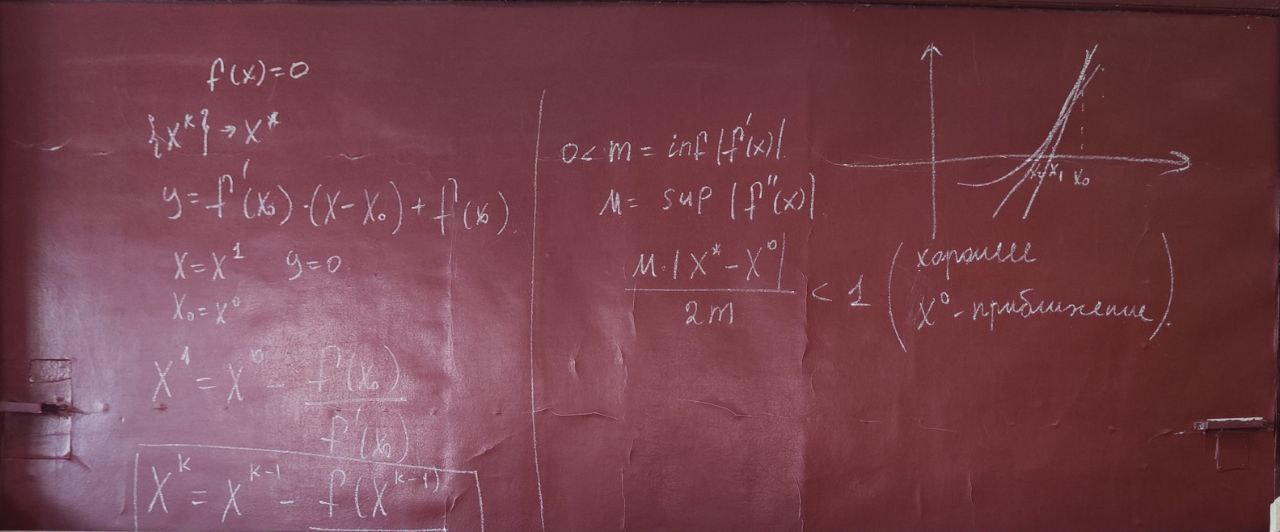 f(x)=0
{x^k} → x*
y=f'(x₀)·(x-x₀)+f(x₀)
x=x¹ y=0
x₀=x⁰
x¹=x⁰ - f(x₀)/f'(x₀)
x^k = x^(k-1) - f(x^(k-1))
0< m = inf |f'(x)|
M = sup |f''(x)|
M·|x*-x⁰|/2m < 1 (хорошее
x⁰-приближение).
x₂ x₁ x₀